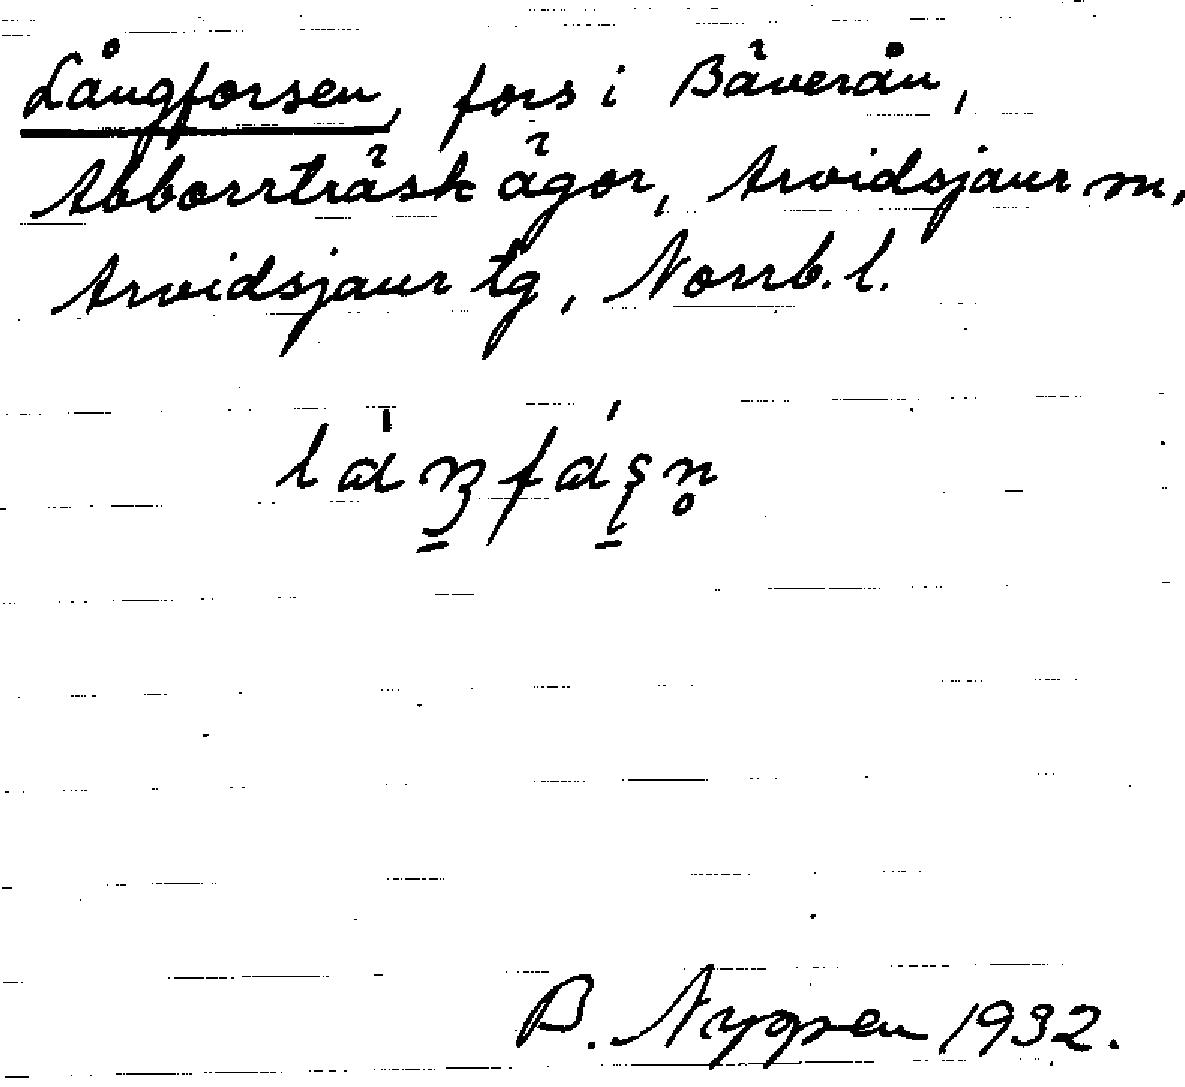 Långforsen, fors i Bäverån,
Abborrträsk ägor, Arvidsjaur sn,
Arvidsjaur tg, Norrb. l.
B. Nygren 1932.